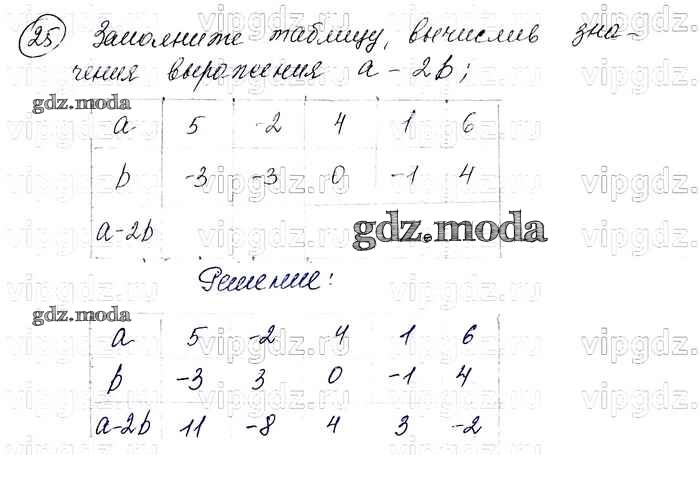 25. Заполните таблицу, вычислив зна-
чения выражения a - 2b;
gdz.moda
a 5 -2 4 1 6
b -3 -3 0 -1 4
a-2b
gdz.moda
Решение:
gdz.moda
a 5 -2 4 1 6
b -3 3 0 -1 4
a-2b 11 -8 4 3 -2
vipgdz.ru